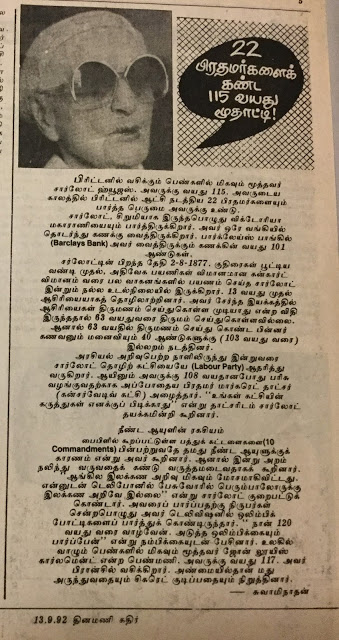 22
பிரதமர்களைக்
கண்ட
115 வயது
மூதாட்டி!
பிரிட்டனில் வசிக்கும் பெண்களில் மிகவும் மூத்தவர்
சார்லோட் ஹ்யூஜ்ஸ். அவருக்கு வயது 115. அவருடைய
காலத்தில் பிரிட்டனில் ஆட்சி நடத்திய 22 பிரதமர்களையும்
பார்த்த பெருமை அவருக்கு உண்டு.
சார்லோட், சிறுமியாக இருந்தபொழுது விக்டோரியா
மகாராணியையும் பார்த்திருக்கிறார். அவர் ஒரே வங்கியில்
தொடர்ந்து கணக்கு வைத்திருக்கிறார். பார்க்லேய்ஸ் பாங்கில்
(Barclays Bank) அவர் வைத்திருக்கும் கணக்கின் வயது 101
ஆண்டுகள்.
சர்லோட்டின் பிறந்த தேதி 2-8-1877. குதிரைகள் பூட்டிய
வண்டி முதல், அதிவேக பயணிகள் விமானமான கன்கார்ட்
விமானம் வரை பல வாகனங்களில் பயணம் செய்த சார்லோட்
இன்றும் நல்ல உடல்நிலையில் இருக்கிறார். 13 வயது முதல்
ஆசிரியையாகத் தொழிலாற்றினார். அவர் சேர்ந்த இயக்கத்தில்
ஆசிரியைகள் திருமணம் செய்துகொள்ள முடியாது என்ற விதி
இருந்ததால் 63 வயதுவரை திருமணம் செய்துகொள்ளவில்லை.
ஆனால் 63 வயதில் திருமணம் செய்து கொண்ட பின்னர்
கணவனும் மனைவியும் 40 ஆண்டுகளுக்கு (103 வயது வரை)
இல்லறம் நடத்தினர்.
அரசியல் அறிவுபெற்ற நாளிலிருந்து இன்றுவரை
சார்லோட் தொழிற் கட்சியையே (Labour Party) ஆதரித்து
வருகிறார். ஆயினும் அவருக்கு 108 வயதானபோது பரிசு
வழங்குவதற்காக அப்போதைய பிரதமர் மார்கரெட் தாட்சர்
(கன்சர்வேடிவ் கட்சி) அழைத்தார். "உங்கள் கட்சியின்
கருத்துகள் எனக்குப் பிடிக்காது" என்று தாட்சரிடம் சார்லோட்
தயக்கமின்றி கூறினார்.
நீண்ட ஆயுளின் ரகசியம்
பைபிளில் கூறப்பட்டுள்ள பத்துக் கட்டளைகளை(10
Commandments) பின்பற்றுவதே தமது நீண்ட ஆயுளுக்குக்
காரணம் என்று அவர் கூறினார். ஆனால் இன்று அறம்
நலித்து வருவதைக் கண்டு வருத்தமடைவதாகக் கூறினார்.
ஆங்கில இலக்கண அறிவு மிகவும் மோசமாகிவிட்டது.
என்னுடன் டெலிபோனில் பேசுவோரில் பெரும்பாலோருக்கு
இலக்கண அறிவே இல்லை" என்று சார்லோட் குறைபட்டுக்
கொண்டார். அவரைப் பார்ப்பதற்கு நிருபர்கள்
சென்றபொழுது அவர் டெலிவிஷனில் ஒலிம்பிக்
போட்டிகளைப் பார்த்துக் கொண்டிருந்தார். "நான் 120
வயது வரை வாழ்வேன். அடுத்த ஒலிம்பிக்கையும்
பார்ப்பேன்" என்று நம்பிக்கையுடன் பேசினார். உலகில்
வாழும் பெண்களில் மிகவும் மூத்தவர் ஜோன் லூயிஸ்
கார்லமென்ட் என்ற பெண்மணி. அவருக்கு வயது 117. அவர்
பிரான்சில் வசிக்கிறார். அண்மையில்தான் மது
அருந்துவதையும் சிகரெட் குடிப்பதையும் நிறுத்தினார்.
— சுவாமிநாதன்
13.9.92 தினமணி கதிர்